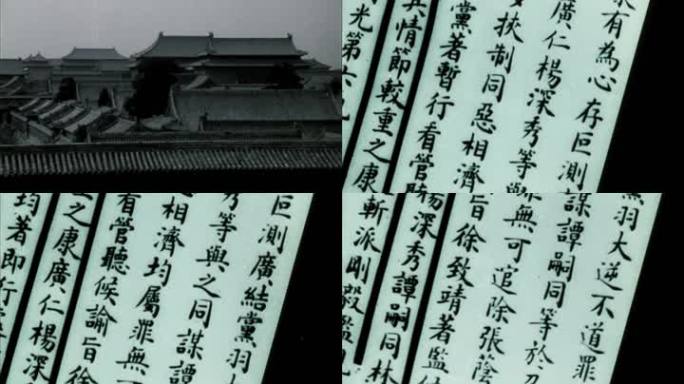 有為心存叵測
廣仁楊深秀等
挾制同惡相濟
黨著暫行看管
其情節較重之康
光第
叵測廣結黨羽大
秀等與之同謀譚
相濟均屬罪無
看管聽候諭旨徐
之康廣仁楊深
均著即行
羽大逆不道罪
謀譚嗣同等於召
無可追除張蔭
旨徐致靖著監
楊深秀譚嗣同林
斬派剛毅監